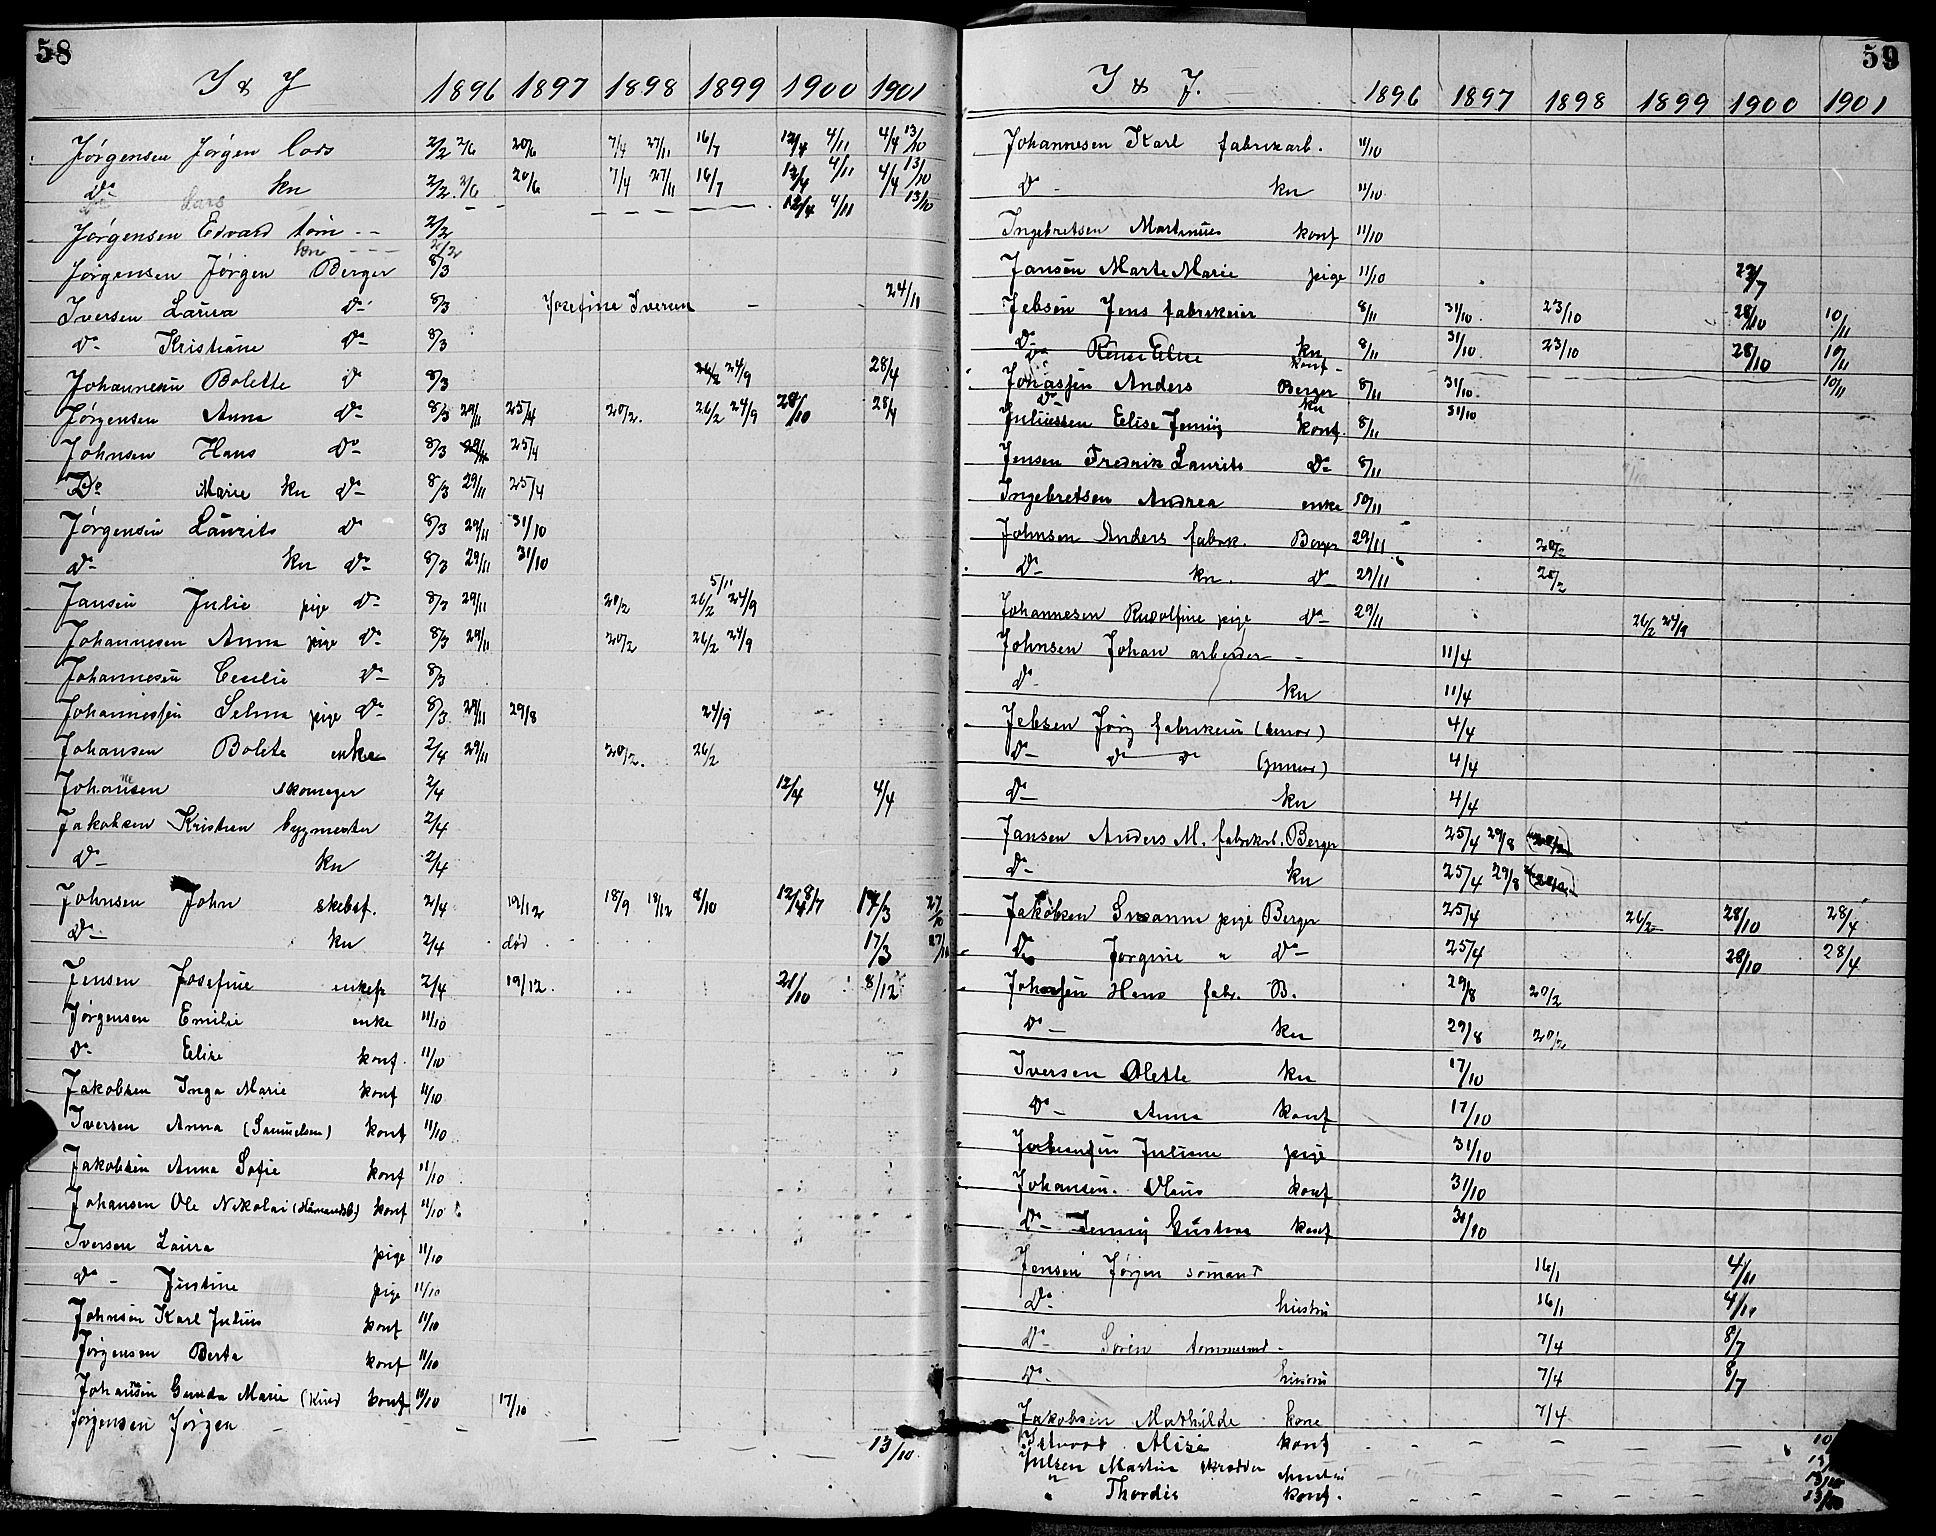 58
I & J 1896 1897 1898 1899 1900 1901
Jørgensen Jørgen Lods 2/2 2/6 20/6 7/4 27/11 16/7 12/4 4/11 4/4 13/10
Do kn 2/2 2/6 20/6 7/4 27/11 16/7 12/4 4/11 4/4 13/10
Do Lars 12/4 4/11 13/10
Jørgensen Edvard tøm 2/2
kn 2/2
Jørgensen Jørgen Berger 8/3
Iversen Laura Do 8/3 Josefine Iversen 24/11
Do Kristiane Do 8/3
Johannesen Bolette Do 8/3 26/2 24/9 28/4
Jørgensen Anna Do 8/3 29/11 25/4 20/2 26/2 24/9 28/10 28/4
Johnsen Hans Do 8/3 29/11 25/4
Do Marie kn Do 8/3 29/11 25/4
Jørgensen Laurits Do 8/3 29/11 31/10
Do kn Do 8/3 29/11 31/10
Jansen Julie pige Do 8/3 29/11 20/2 26/2 24/9 5/11
Johannesen Anna pige Do 8/3 29/11 20/2 26/2 24/9
Johannesen Cecilie Do 8/3
Johannessen Selma pige Do 8/3 29/11 29/8 24/9
Johansen Bolete enke 2/4 29/11 20/2 26/2
Johansen skomager 2/4 12/4 4/4
Jakobsen Kristian bygmester 2/4
Do kn 2/4
Johnsen John skibsf. 2/4 19/12 18/9 18/12 8/10 12/4 8/7 17/3 27/10
Do kn 2/4 død 17/3 27/10
Jensen Josefine enkef 2/4 19/12 21/10 8/12
Jørgensen Emilie enke 11/10
Do Elise konf. 11/10
Jakobsen Inga Marie konf 11/10
Iversen Anna (Samuelsen) konf 11/10
Jakobsen Anna Sofie konf 11/10
Johansen Ole Nikolai konf 11/10
Iversen Laura pige 11/10
Do Justine pige 11/10
Johnsen Karl Julius konf 11/10
Jørgensen Berta konf 11/10
Johansen Gunda Marie konf 11/10 17/10
Jørgensen Jørgen 13/10
59
I & J. 1896 1897 1898 1899 1900 1901
Johannesen Karl fabrikarb. 11/10
Do kn 11/10
Ingebretsen Martinius konf 11/10
Jansen Marte Marie pige 11/10 22/7
Jebsen Jens fabrikeier 8/11 31/10 23/10 28/10 10/11
Do kn 8/11 31/10 23/10 28/10 10/11
Do Elise konf 10/11
Jonassen Anders Berger 8/11 31/10
Do kn 31/10
Juliussen Elise Jenny konf. 8/11
Jensen Fredrik Laurits Do 8/11
Ingebretsen Andrea enke 10/11
Johnsen Anders fabrik. Berger 29/11 20/2
Do kn. Do 29/11 20/2
Johannesen Rudolfine pige Do 29/11 26/2 24/9
Johnsen Johan arbeider 11/4
Do kn 11/4
Jebsen Jørg fabrikeier (senior) 4/4
Do Do Do (junior) 4/4
Do kn 4/4
Jansen Anders M. fabrikarb. Berger 25/4 29/8
Do kn 25/4 29/8
Jakobsen Susanne pige Berger 25/4 26/2 28/10 28/4
Do Jørgine " Do 25/4 28/10 28/4
Johansen Hans fabr. B. 29/8 20/2
Do kn 29/8 20/2
Iversen Olette kn 17/10
Do Anna konf 17/10
Johansen Juliane pige 31/10
Johansen Klaus konf 31/10
Do Jenny Gustava konf 31/10
Jensen Jørgen sømand 16/1 4/11
Do hustru 16/1 4/11
Do Søren tømmermd 7/4 8/7
Do hustru 7/4 8/7
Jakobsen Mathilde kone 7/4
Alise konf 10
Julsen Martin skrædder 13/10
" hustru 13/10
" Thordis konf. 13/10